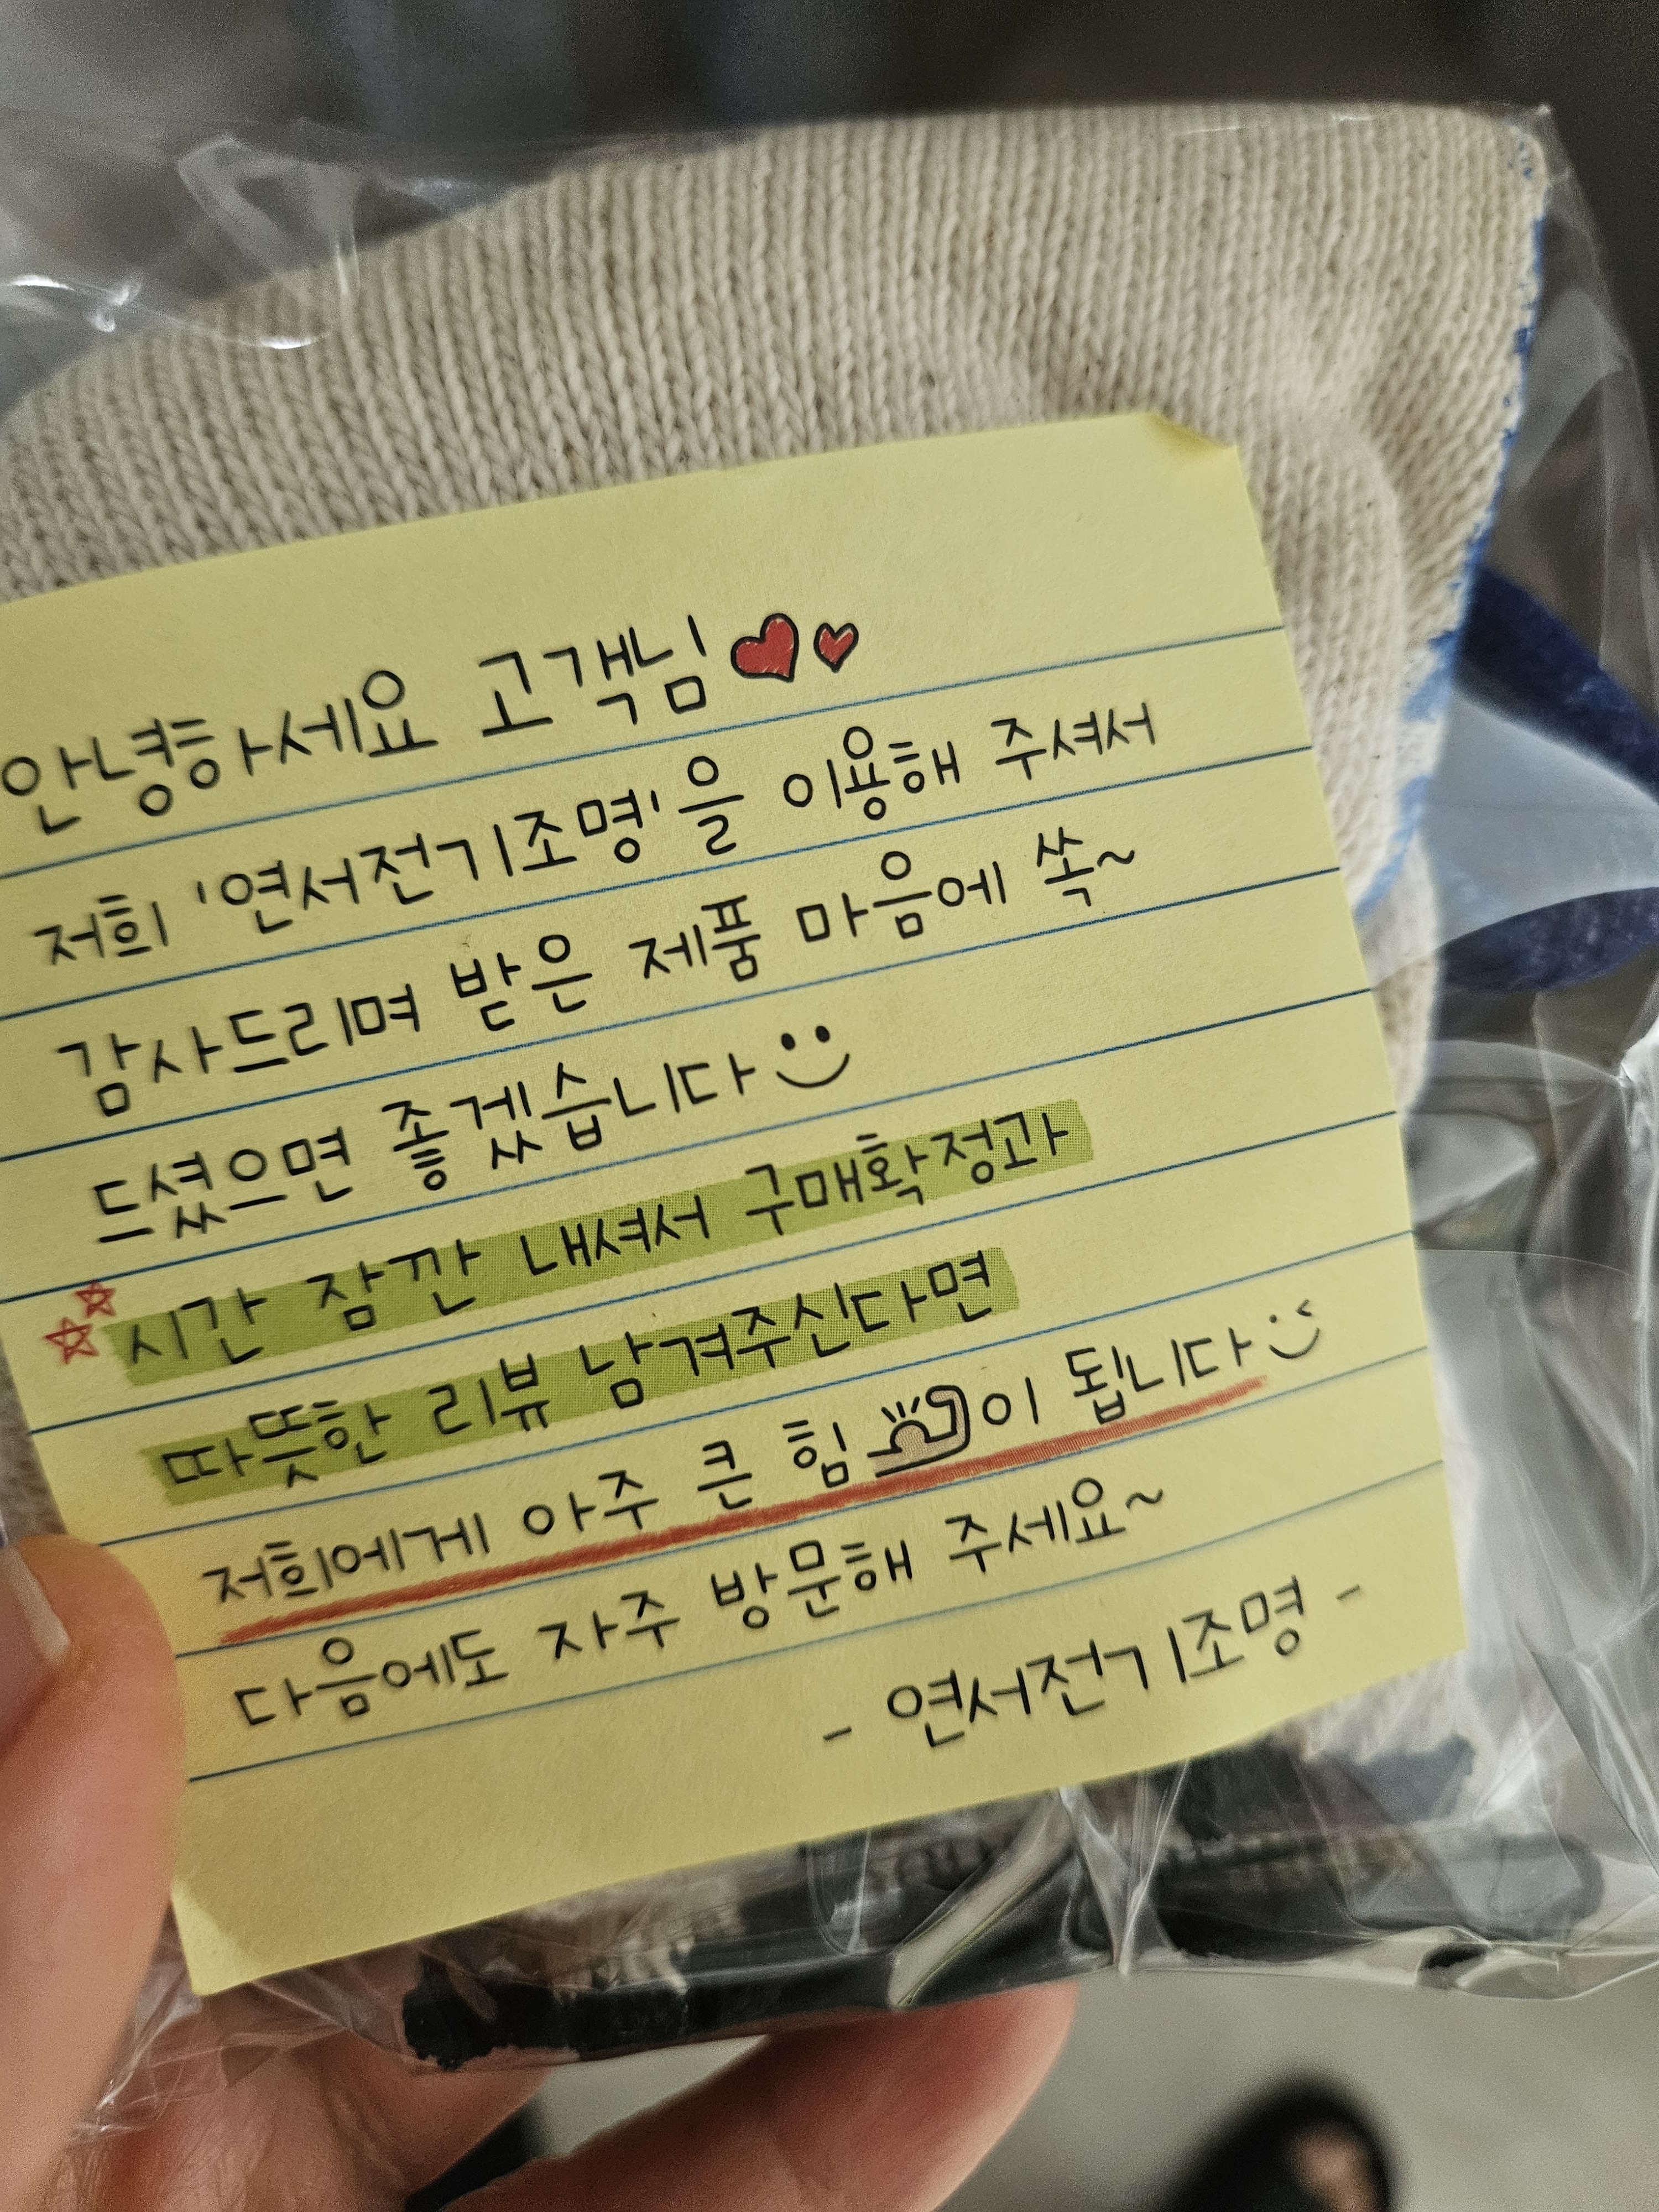 안녕하세요 고객님
저희 '연서전기조명'을 이용해 주셔서
감사드리며 받은 제품 마음에 쏙~
드셨으면 좋겠습니다
시간 잠깐 내셔서 구매확정과
따뜻한 리뷰 남겨주신다면
저희에게 아주 큰 힘이 됩니다
다음에도 자주 방문해 주세요~
- 연서전기조명 -